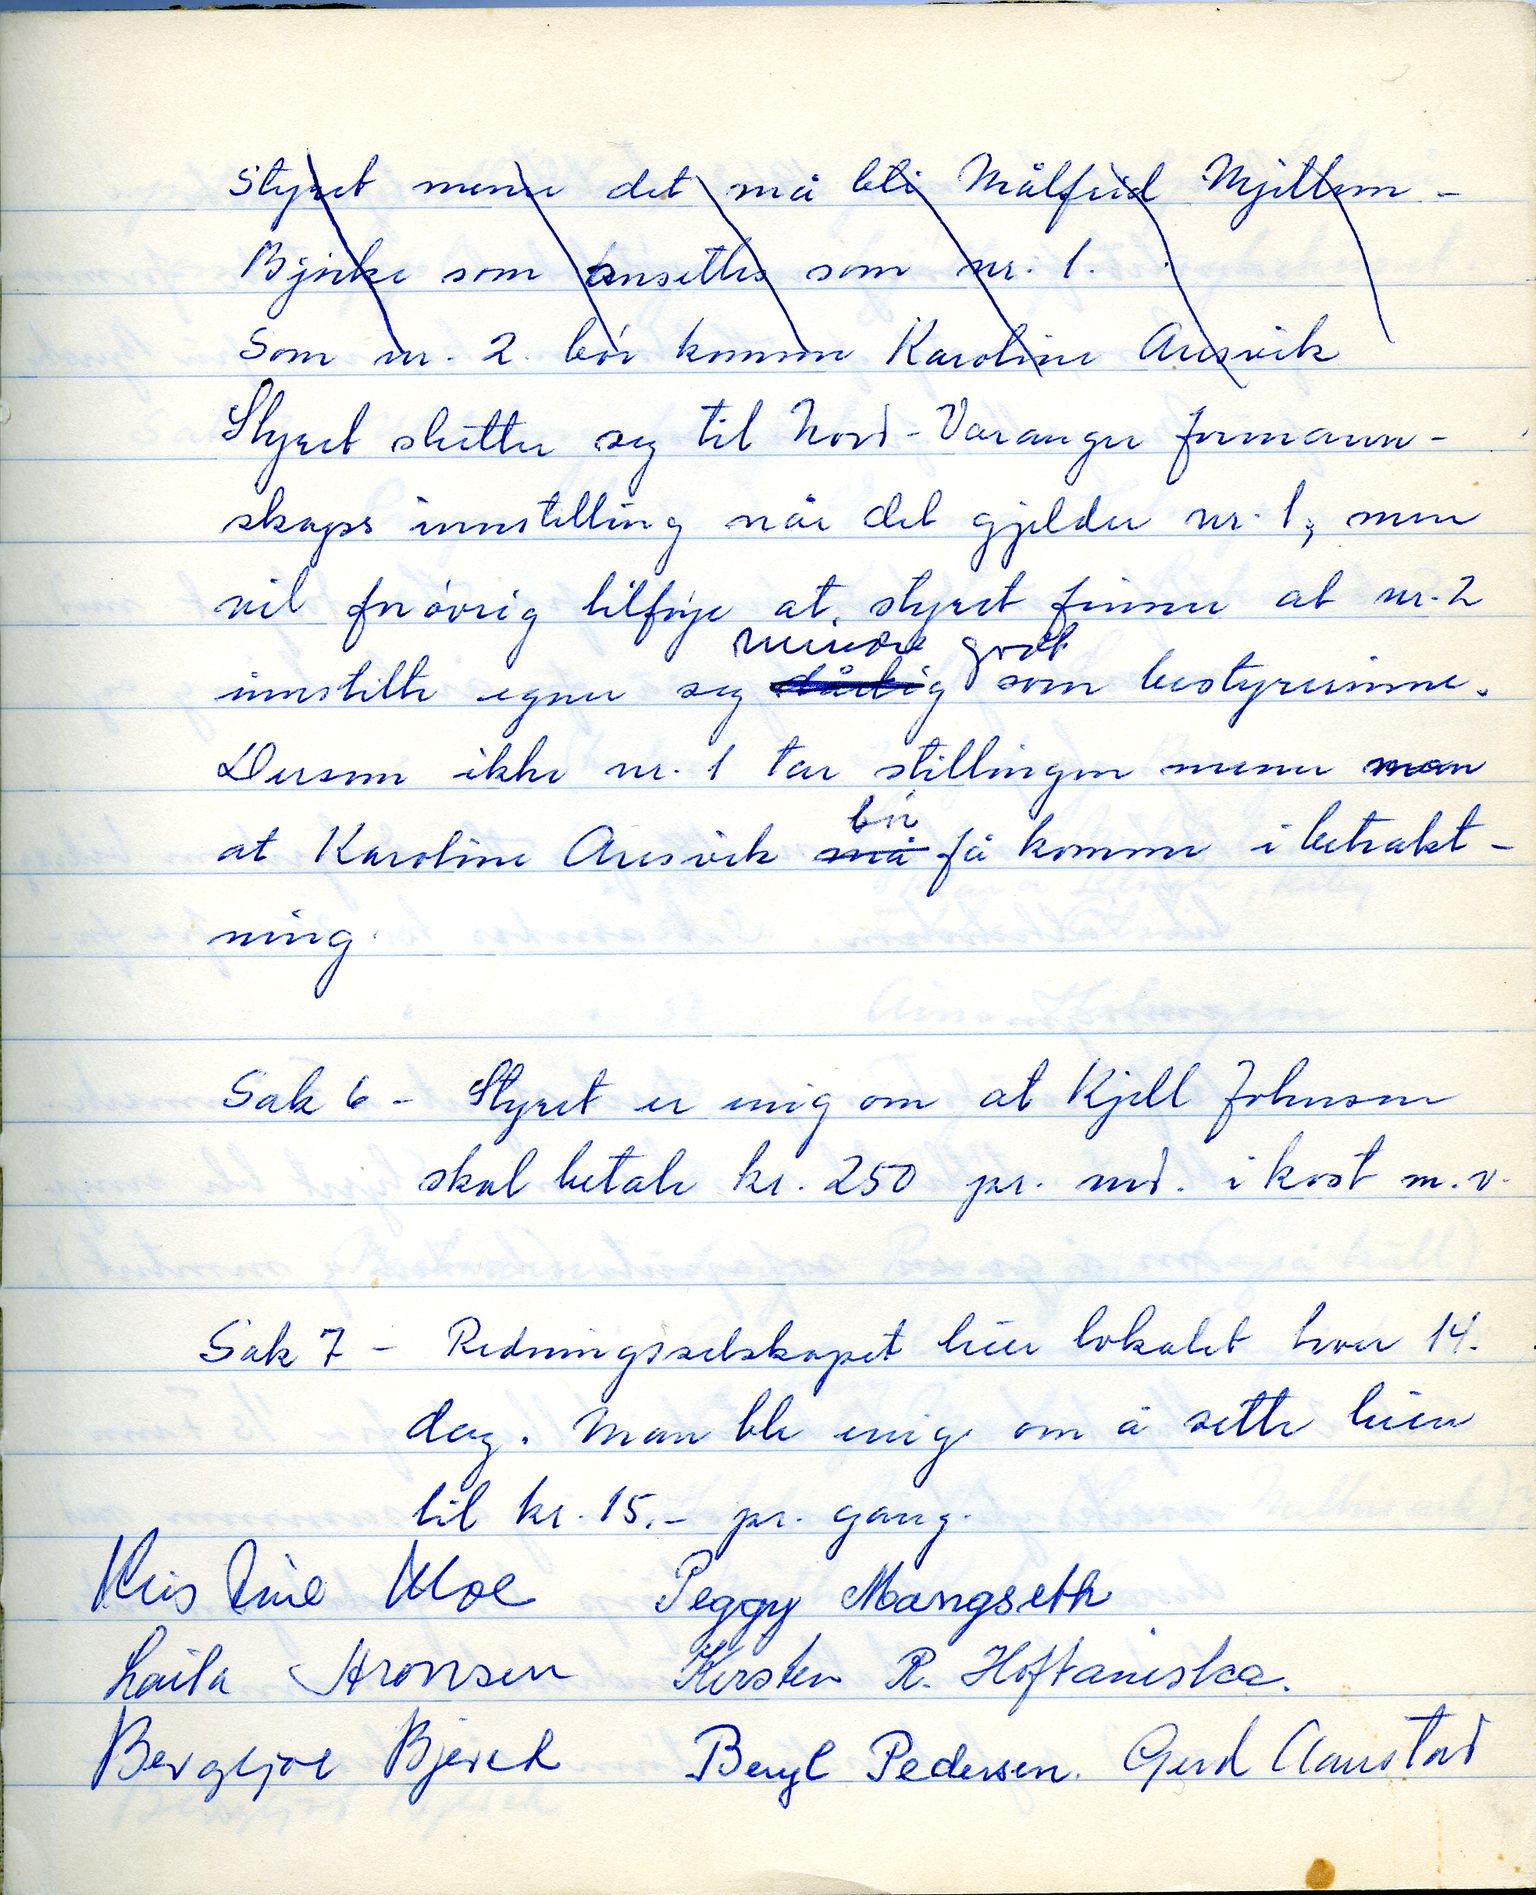 Styret mener det må bli Målfrid Mjellem -
Bjirke som ansettes som nr. 1.
Som nr. 2. bør komme Karoline Aresvik
Styret slutter seg til Nord-Varanger formann-
skaps innstilling når det gjelder nr. 1, men
vil forøvrig tilføye at styret finner at nr. 2
mindre godt
innstilte egner seg dårlig som bestyrerinne.
Dersom ikke nr. 1 tar stillingen mener man
bør
at Karoline Aresvik må få komme i betrakt-
ning.
Sak 6 - Styret er enig om at Kjell Johnsen
skal betale kr. 250 pr. mnd. i kost m.v.
Sak 7 - Redningsselskapet leier lokalet hver 14.
dag. Man ble enig om å sette leien
til kr. 15.- pr. gang.
Kristine Moe Peggy Mangseth
Laila Aronsen Kirsten R. Hoftaniska.
Bergljot Bjerck Beryl Pedersen. Gerd Aanstad